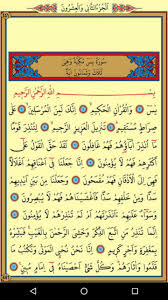 الجزء الثاني والعشرون
سورة يس مكية وهي
ثلاث وثمانون آية
بِسْمِ اللهِ الرَّحْمٰنِ الرَّحِيمِ
يس وَالْقُرْآنِ الْحَكِيمِ إِنَّكَ لَمِنَ الْمُرْسَلِينَ عَلَى
صِرَاطٍ مُسْتَقِيمٍ تَنْزِيلَ الْعَزِيزِ الرَّحِيمِ لِتُنْذِرَ قَوْمًا
مَا أُنْذِرَ آبَاؤُهُمْ فَهُمْ غَافِلُونَ لَقَدْ حَقَّ الْقَوْلُ عَلَى
أَكْثَرِهِمْ فَهُمْ لَا يُؤْمِنُونَ إِنَّا جَعَلْنَا فِي أَعْنَاقِهِمْ أَغْلَالًا
فَهِيَ إِلَى الْأَذْقَانِ فَهُمْ مُقْمَحُونَ وَجَعَلْنَا مِنْ بَيْنِ أَيْدِيهِمْ
سَدًّا وَمِنْ خَلْفِهِمْ سَدًّا فَأَغْشَيْنَاهُمْ فَهُمْ لَا يُبْصِرُونَ
وَسَوَاءٌ عَلَيْهِمْ أَأَنْذَرْتَهُمْ أَمْ لَمْ تُنْذِرْهُمْ لَا يُؤْمِنُونَ
إِنَّمَا تُنْذِرُ مَنِ اتَّبَعَ الذِّكْرَ وَخَشِيَ الرَّحْمٰنَ بِالْغَيْبِ فَبَشِّرْهُ
بِمَغْفِرَةٍ وَأَجْرٍ كَرِيمٍ إِنَّا نَحْنُ نُحْيِي الْمَوْتَى وَنَكْتُبُ مَا
قَدَّمُوا وَآثَارَهُمْ وَكُلَّ شَيْءٍ أَحْصَيْنَاهُ فِي إِمَامٍ مُبِينٍ